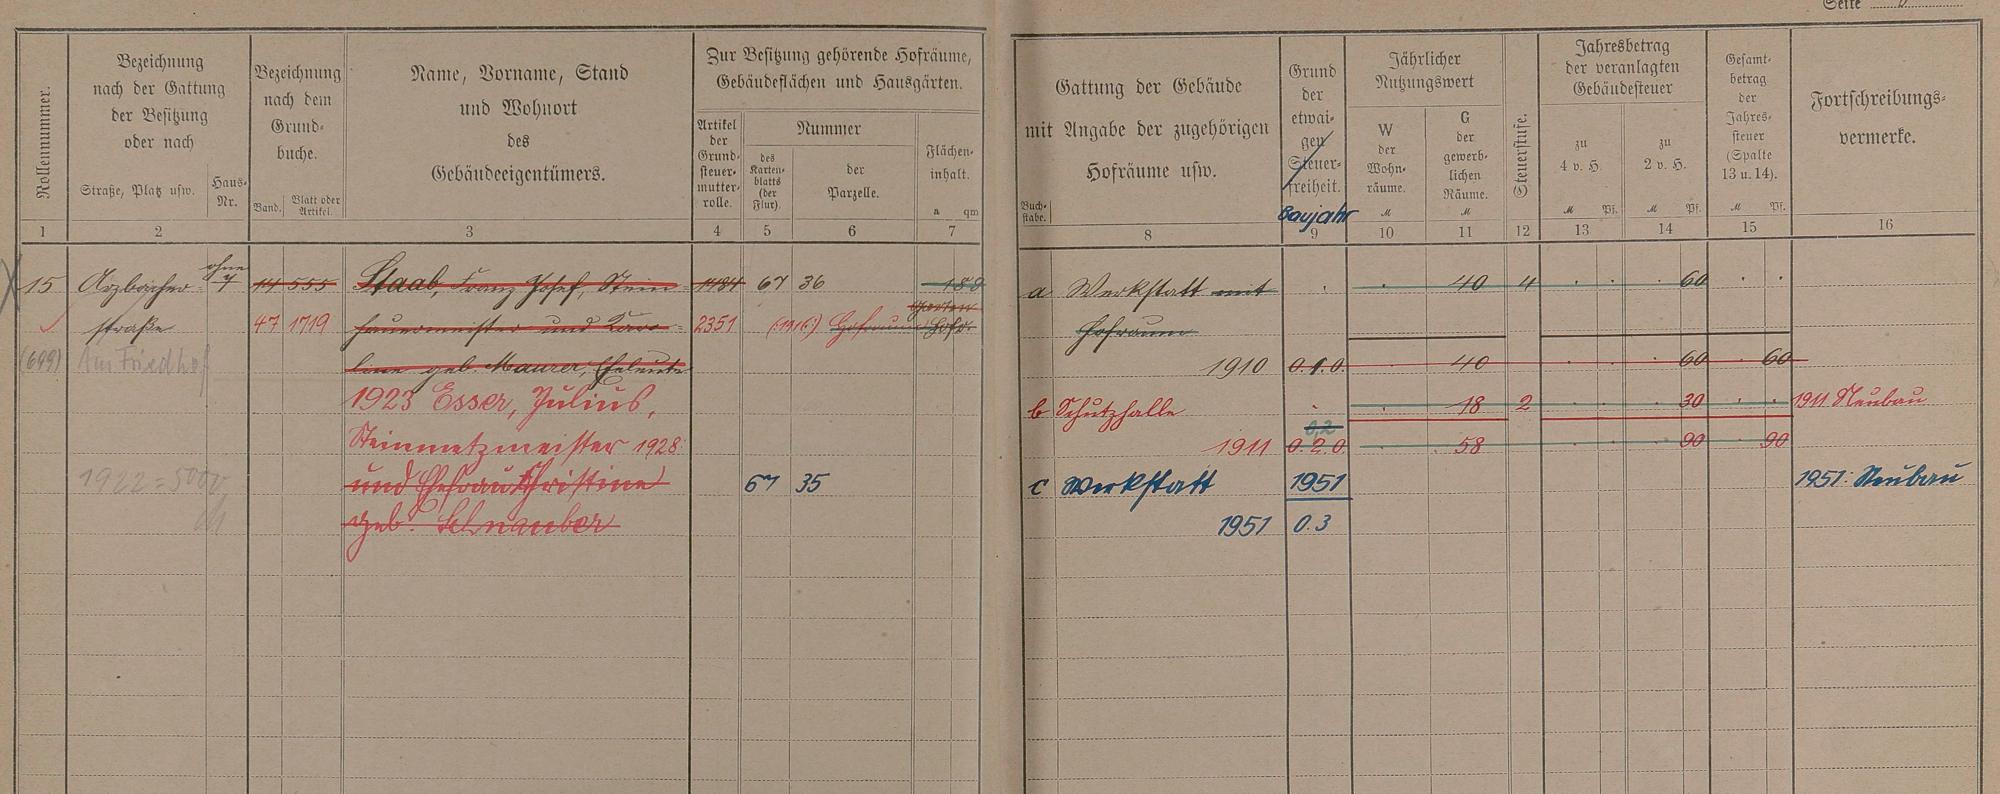 Seite
Rollennummer.
Bezeichnung
nach der Gattung
der Besitzung
oder nach
Straße, Platz usw.
Haus-
Nr.
Bezeichnung
nach dem
Grund-
buche.
Band.
Blatt oder
Artikel.
Name, Vorname, Stand
und Wohnort
des
Gebäudeeigentümers.
Zur Besitzung gehörende Hofräume,
Gebäudeflächen und Hausgärten.
Artikel
der
Grund-
steuer-
mutter-
rolle.
Nummer
des
Karten-
blatts
(der
Flur).
der
Parzelle.
Flächen-
inhalt.
a qm
1 2 3 4 5 6 7
15 Arzbacher- ohne 14 555 Staab, Franz Josef, Stein- 1484 67 36
straße 47 1719 hauermeister und Karo- 2351 (1916:) Hofraum Garten Hofr.
(699) Am Friedhof line geb. Maurer, Eheleute
1923 Esser, Julius,
Steinmetzmeister 1928:
1922 = 5000 und Ehefrau Christine 67 35
geb. Schnauber
Gattung der Gebäude
mit Angabe der zugehörigen
Hofräume usw.
Buch-
stabe.
Grund
der
etwai-
gen
Steuer-
freiheit.
Baujahr
Jährlicher
Nutzungswert
W
der
Wohn-
räume.
M
G
der
gewerb-
lichen
Räume.
M
Steuerstufe.
Jahresbetrag
der veranlagten
Gebäudesteuer
zu
4 v. H.
M Pf.
zu
2 v. H.
M Pf.
Gesamt-
betrag
der
Jahres-
steuer
(Spalte
13 u. 14).
M Pf.
Fortschreibungs-
vermerke.
8 9 10 11 12 13 14 15 16
a Werkstatt mit 40 4 60
Hofraum
1910 0.1.0. 40 60 60
b Schutzhalle 18 2 30 1911 Neubau
0,2
1911 0.2.0. 58 90 90
c Werkstatt 1951 1951: Neubau
1951 0.3